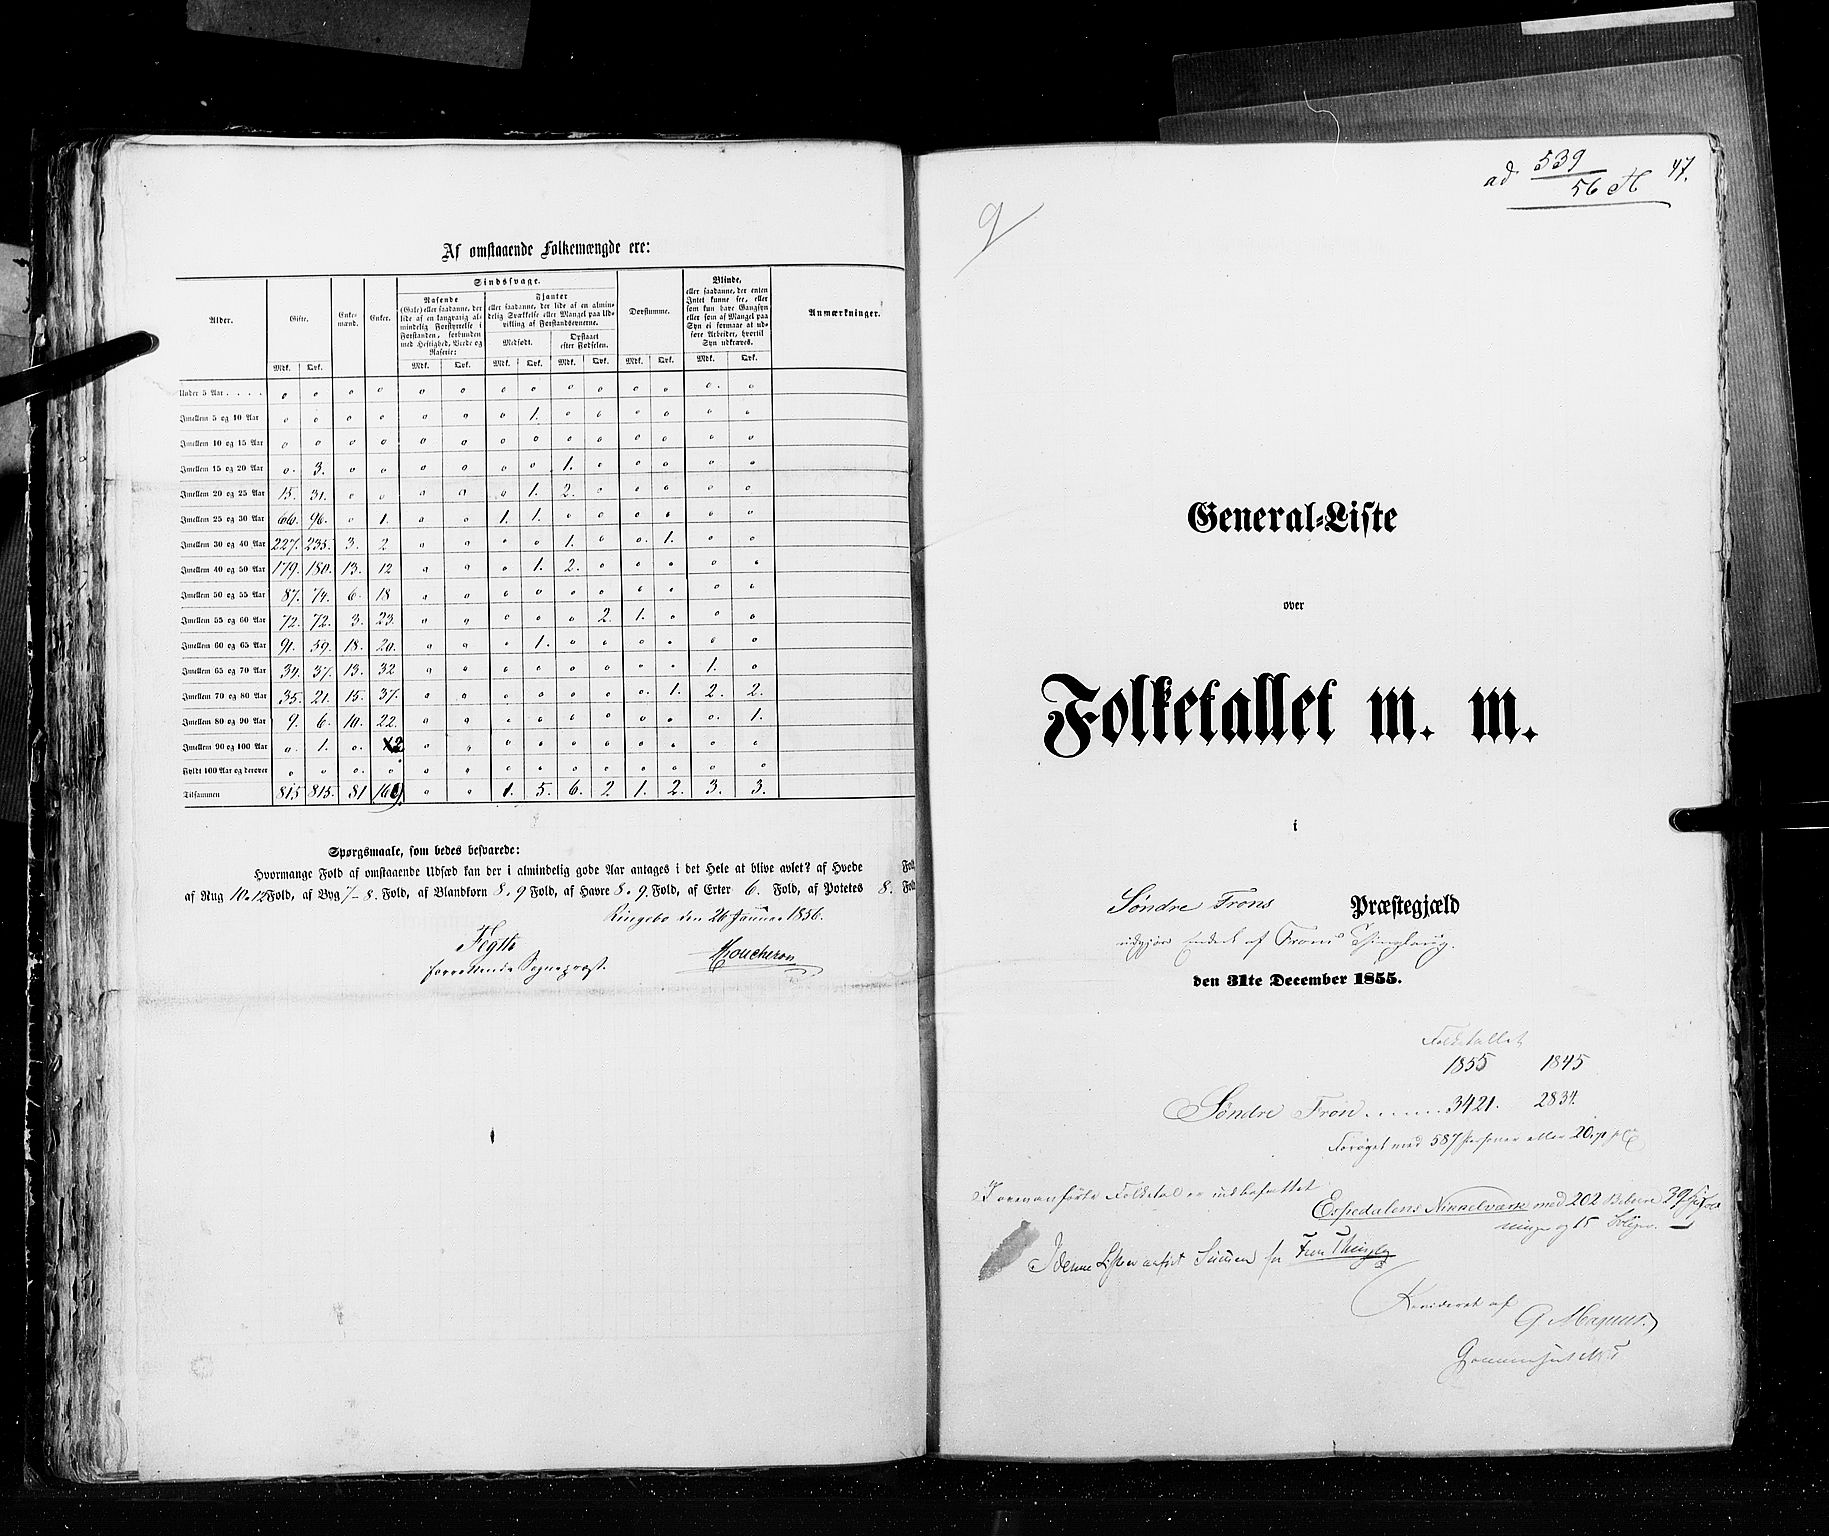 Af omstaaende Folkemængde ere:
Alder. Gifte. Enke-mænd. Enker. Sindssvage. Døvstumme. Blinde, Anmærkninger.
Rasende (Gale) eller saadanne, der lide af en langvarig almindelig Forstyrrelse i Forstanden, forbunden med Heftighed, Vrede og Raserie:
Fjanter eller saadanne, der lide af en almindelig Svækkelse eller Mangel paa Udvikling af Forstandsevnerne.
Medfødt. Opstaaet efter Fødselen.
eller saadanne, der enten Intet kunne see, eller som kun have Gangsyn eller som af Mangel paa Syn ei formaae at udføre Arbeider, hvortil Syn udkræves.
Mdk. Qvk. Mdk. Qvk. Mdk. Qvk. Mdk. Qvk. Mdk. Qvk. Mdk. Qvk.
Under 5 Aar . . . . 0 0 0 0 0 0 0 0 0 0 0 0 0 0
Imellem 5 og 10 Aar 0 0 0 0 0 0 0 1. 0 0 0 0 0 0
Imellem 10 og 15 Aar 0 0 0 0 0 0 0 0 0 0 0 0 0 0
Imellem 15 og 20 Aar 0. 3. 0 0 0 0 0 0 1. 0 0 0 0 0
Imellem 20 og 25 Aar 15. 31. 0 0 0 0 0 1. 2. 0 0 0 0 0
Imellem 25 og 30 Aar 66. 96. 0 1. 0 0 1. 1. 0 0 0 0 0 0
Imellem 30 og 40 Aar 227. 235. 3. 2 0 0 0 0 1. 0 0. 1. 0 0
Imellem 40 og 50 Aar 179. 180. 13. 12 0 0 0 1. 2. 0 0 0 0 0
Imellem 50 og 55 Aar 87. 74. 6. 18 0 0 0 0 0 0 0 0 0 0
Imellem 55 og 60 Aar 72. 72. 3. 23. 0 0 0 0 0 2. 1. 0 0 0
Imellem 60 og 65 Aar 91. 59. 18. 20. 0 0 0 1. 0 0 0 0 0 0
Imellem 65 og 70 Aar 34. 37. 13. 32 0 0 0 0 0 0 0 0 1. 0
Imellem 70 og 80 Aar 35. 21. 15. 37. 0 0 0 0 0 0 0. 1. 2. 2.
Imellem 80 og 90 Aar 9. 6. 10. 22. 0 0 0 0 0 0 0 0 0. 1.
Imellem 90 og 100 Aar 0. 1. 0. 2 0 0 0 0 0 0 0 0 0 0
Fyldt 100 Aar og derover 0 0 0. 0 0 0 0 0 0 0 0 0 0 0
Tilsammen 815 815. 81 169. 0 0 1. 5. 6. 2 1. 2. 3. 3.
Spørgsmaale, som bedes besvarede:
Hvormange Fold af omstaaende Udsæd kan der i almindelig gode Aar antages i det Hele at blive avlet? af Hvede Fold,
af Rug 10.12 Fold, af Byg 7-8. Fold, af Blandkorn 8.9 Fold, af Havre 8.9. Fold, af Erter 6. Fold, af Potetes 8. Fold
Ringebo den 26 Januar 1856.
Moucheron
Sognepræst.
ad 539 47.
56 H
9
General-Liste
over
Folketallet m. m.
i
Søndre Frons Præstegjæld
udgjør Endeel af Frons Thinglaug.
den 31te December 1855.
Folketallet
1855 1845
Søndre Fron . . . . . . 3421. 2834.
Forøget med 587 Personer eller
I ovenanførte Folketal er indbefattet
Espedalens Nikkelværk med 202 Beboere
og 15 Boliger.
I denne Liste er anført Summen for Fron Thinglag
Revideret af
G Magnus.